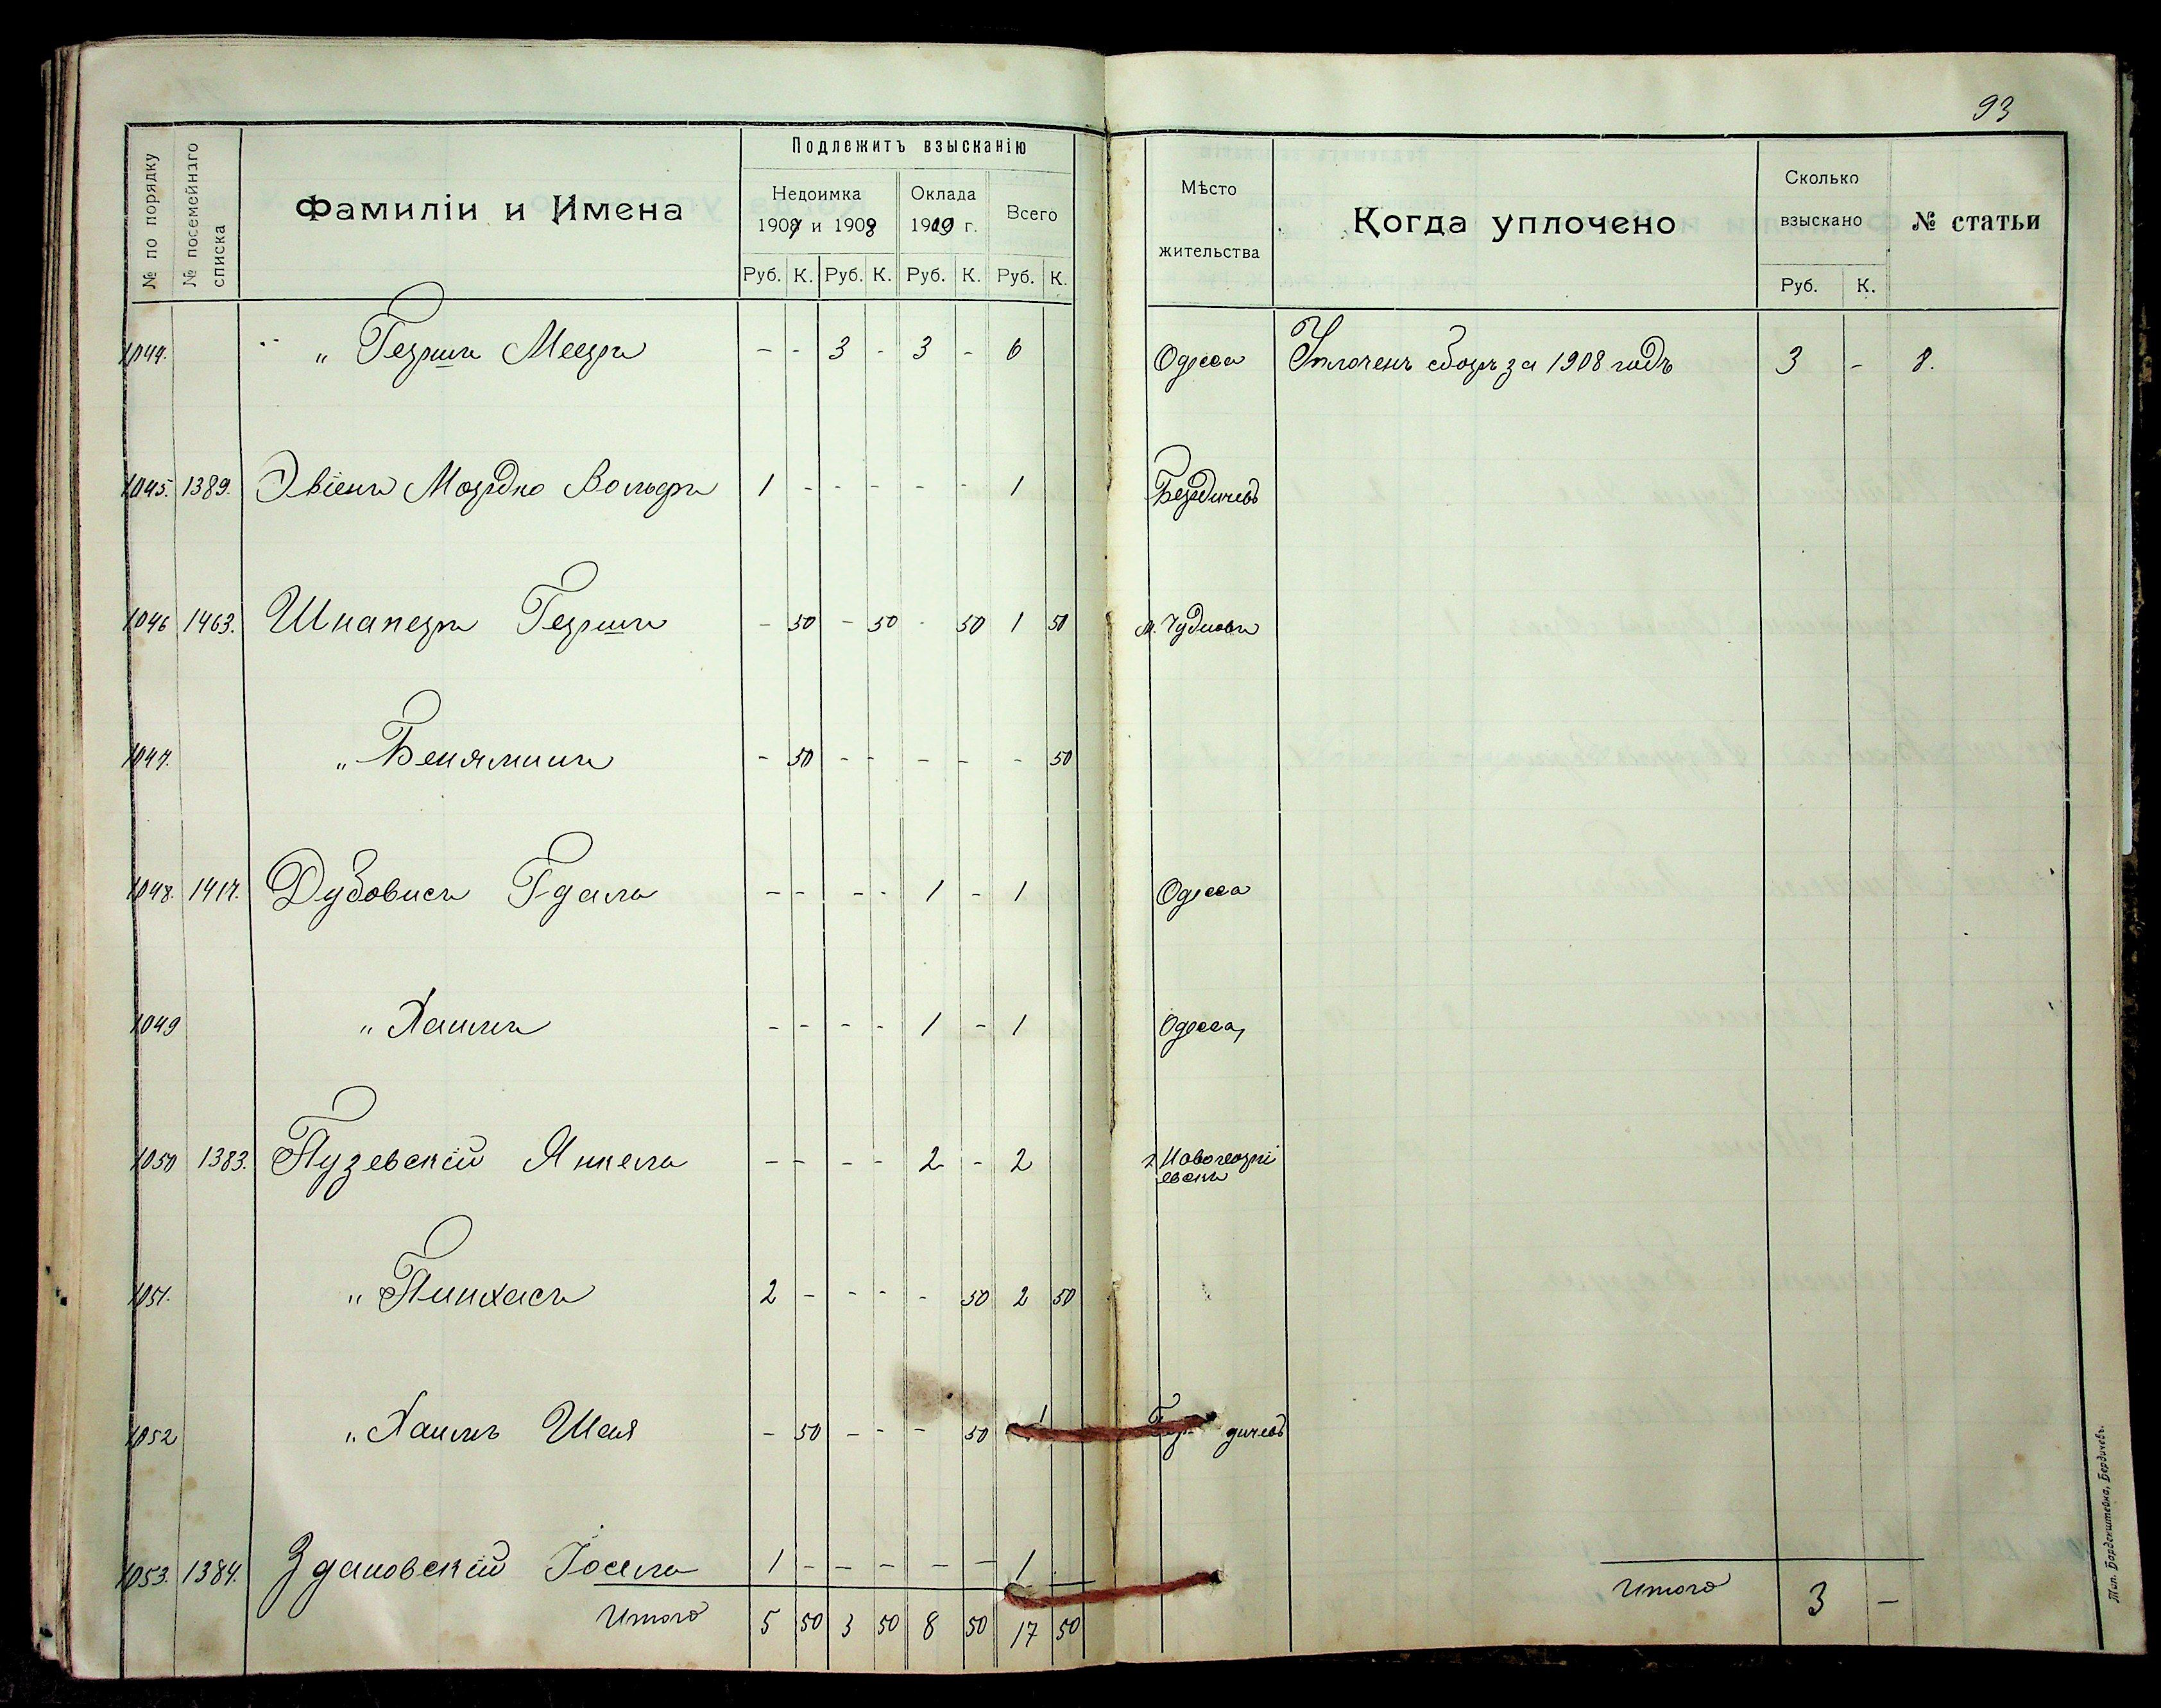 93
№ по порядку
№ посемейнаго списка
Фамиліи и Имена
Подлежитъ взысканію
Недоимка
1907 и 1908
Оклада
1909 г.
Всего
Руб. К. Руб. К. Руб. К. Руб. К.
Мѣсто
жительства
Когда уплочено
Сколько
взыскано
Руб. К.
№ статьи
1044. " " Гершъ Мееръ - - 3 - 3 - 6 Одесса Уплоченъ сборъ за 1908 годъ 3 - 8.
1045. 1389. Эвіенъ Мордко Вольфъ 1 - - - - - 1 Бердичевъ
1046 1463. Шнаперъ Гершъ - 50 - 50 - 50 1 50 м. Чудновъ
1047. " Беняминъ - 50 - - - - - 50
1048. 1417. Дубовисъ Гдаль - - - - 1 - 1 Одесса
1049 " Хаимъ - - - - 1 - 1 Одесса,
1050 1383. Пузевскій Янкель - - - - 2 - 2 г. Новогеоргі
евскъ
1051. " Пинхасъ 2 - - - - 50 2 50
1052 " Хаимъ Шая - 50 - - - 50 1 Бердичевъ
1053. 1384. Здановскій Іосель 1 - - - - - 1
Итого 5 50 3 50 8 50 17 50
Итого 3 -
Тип. Барденштейна, Бердичевъ.